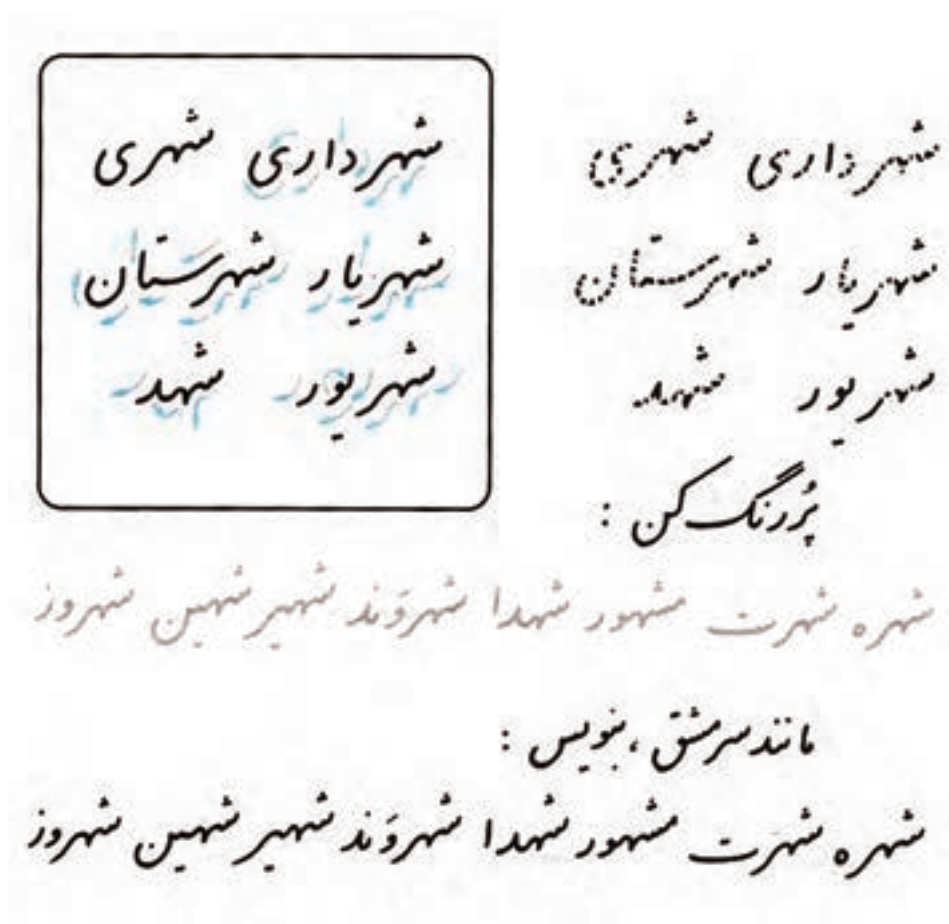 شهرداری شهری
شهریار شهرستان
شهریور شهد
شهرداری شهری
شهریار شهرستان
شهریور شهد
پُررنگ کن :
شهره شهرت مشهور شهدا شهروَند شهیر شهین شهروز
مانند سرمشق ، بنویس :
شهره شهرت مشهور شهدا شهروَند شهیر شهین شهروز